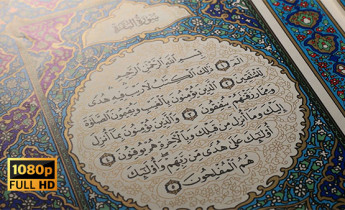 سورة البقرة
بسم الله الرحمن الرحيم
الم ۝ ذلك الكتب لا ريب فيه هدى
للمتقين ۝ الذين يؤمنون بالغيب ويقيمون الصلوة
ومما رزقنهم ينفقون ۝ والذين يؤمنون بما أنزل
إليك وما أنزل من قبلك وبالآخرة هم يوقنون ۝
أولئك على هدى من ربهم وأولئك
هم المفلحون ۝
1080p
FULL HD